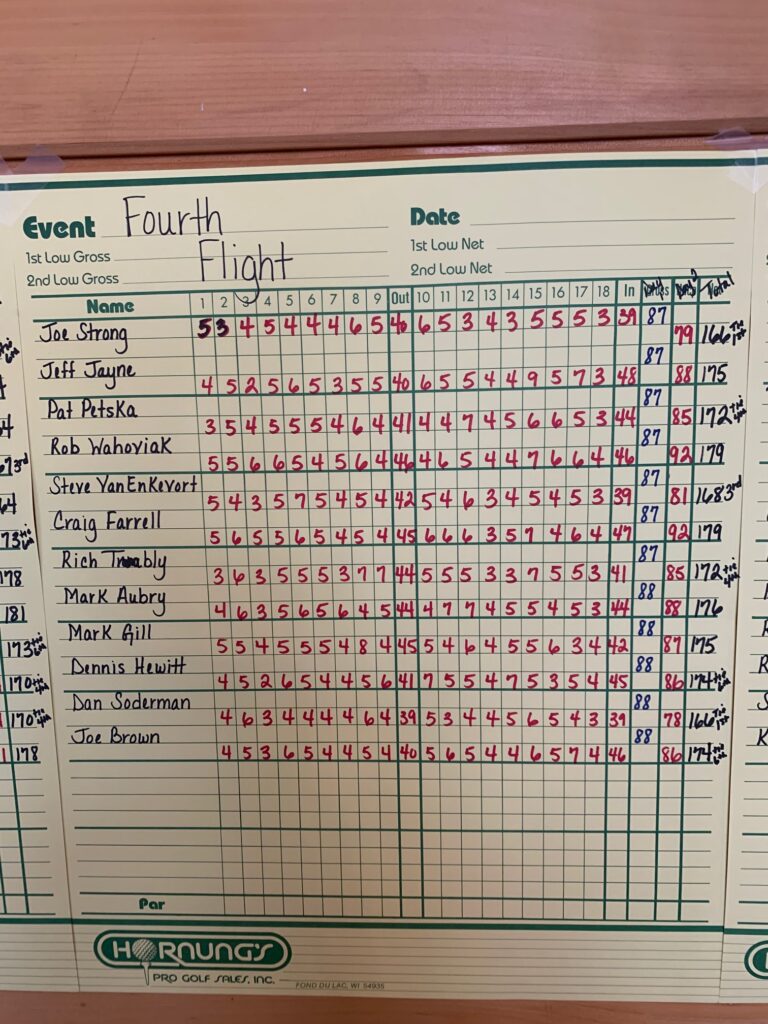 Event Fourth Date
1st Low Gross Flight 1st Low Net
2nd Low Gross 2nd Low Net
Name 1 2 3 4 5 6 7 8 9 Out 10 11 12 13 14 15 16 17 18 In Total
Joe Strong 5 3 4 5 4 4 4 6 5 40 6 5 3 4 3 5 5 5 3 39 87 79 166 1st
Jeff Jayne 4 5 2 5 6 5 3 5 5 40 6 5 5 4 4 9 5 7 3 48 87 88 175
Pat Petska 3 5 4 5 5 5 4 6 4 41 4 4 7 4 5 6 6 5 3 44 87 85 172
Rob Wahoviak 5 5 6 6 5 4 5 6 4 46 4 6 5 4 4 7 6 6 4 46 87 92 179
Steve VanEnKevort 5 4 3 5 7 5 4 5 4 42 5 4 6 3 4 5 4 5 3 39 87 81 168 3rd
Craig Farrell 5 6 5 5 6 5 4 5 4 45 6 6 6 3 5 7 4 6 4 47 87 92 179
Rich 3 6 3 5 5 5 3 7 7 44 5 5 5 3 3 7 5 5 3 41 87 85 172
Mark Aubry 4 6 3 5 6 5 6 4 5 44 4 7 7 4 5 5 4 5 3 44 88 88 176
Mark Gill 5 5 4 5 5 5 4 8 4 45 5 4 6 4 5 5 6 3 4 42 88 87 175
Dennis Hewitt 4 5 2 6 5 4 4 5 6 41 7 5 5 4 7 5 3 5 4 45 88 86 174
Dan Soderman 4 6 3 4 4 4 4 6 4 39 5 3 4 4 5 6 5 4 3 39 88 78 166 1st
Joe Brown 4 5 3 6 5 4 4 5 4 40 5 6 5 4 4 6 5 7 4 46 88 86 174
Par
HORNUNG'S
PRO GOLF SALES, INC.
FOND DU LAC, WI 54935